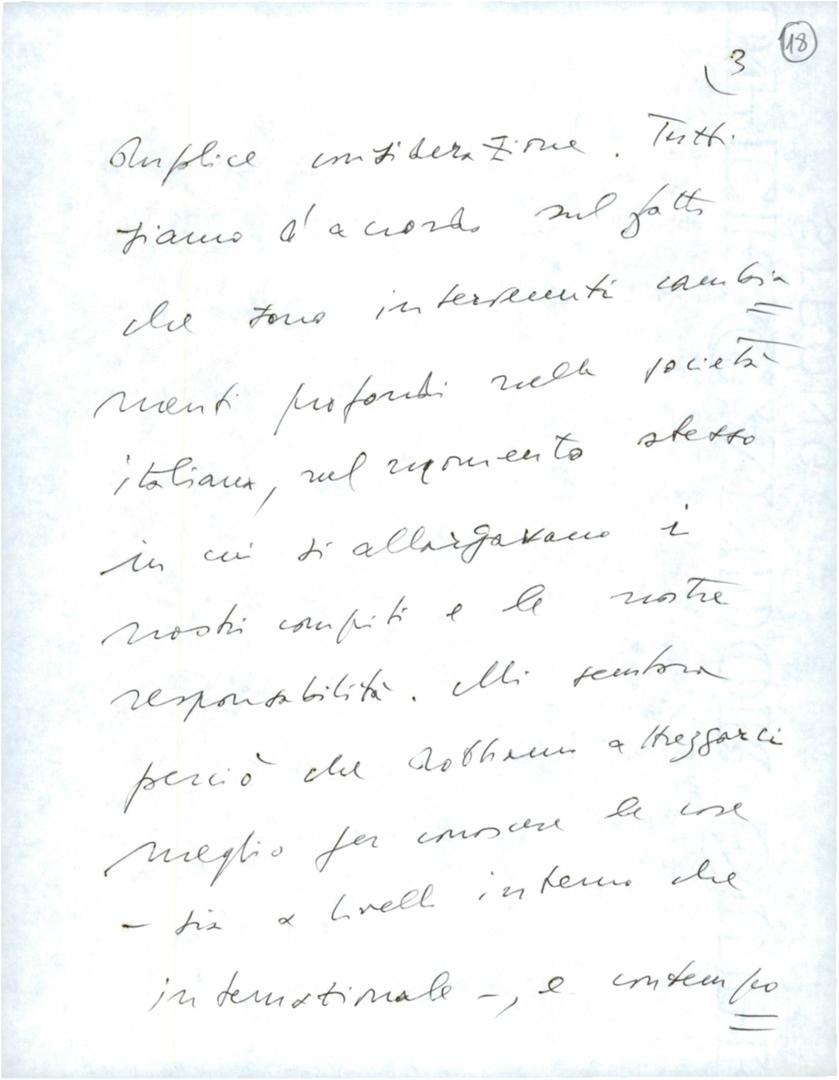 18
3
semplice considerazione. Tutti
siamo d'accordo sul fatto
che sono intervenuti cambia
menti profondi nella società
italiana, nel momento stesso
in cui si allargavano i
nostri compiti e le nostre
responsabilità. Mi sembra
perciò che dobbiamo attrezzarci
meglio per conoscere le cose
– sia a livello interno che
internazionale –, e contempo